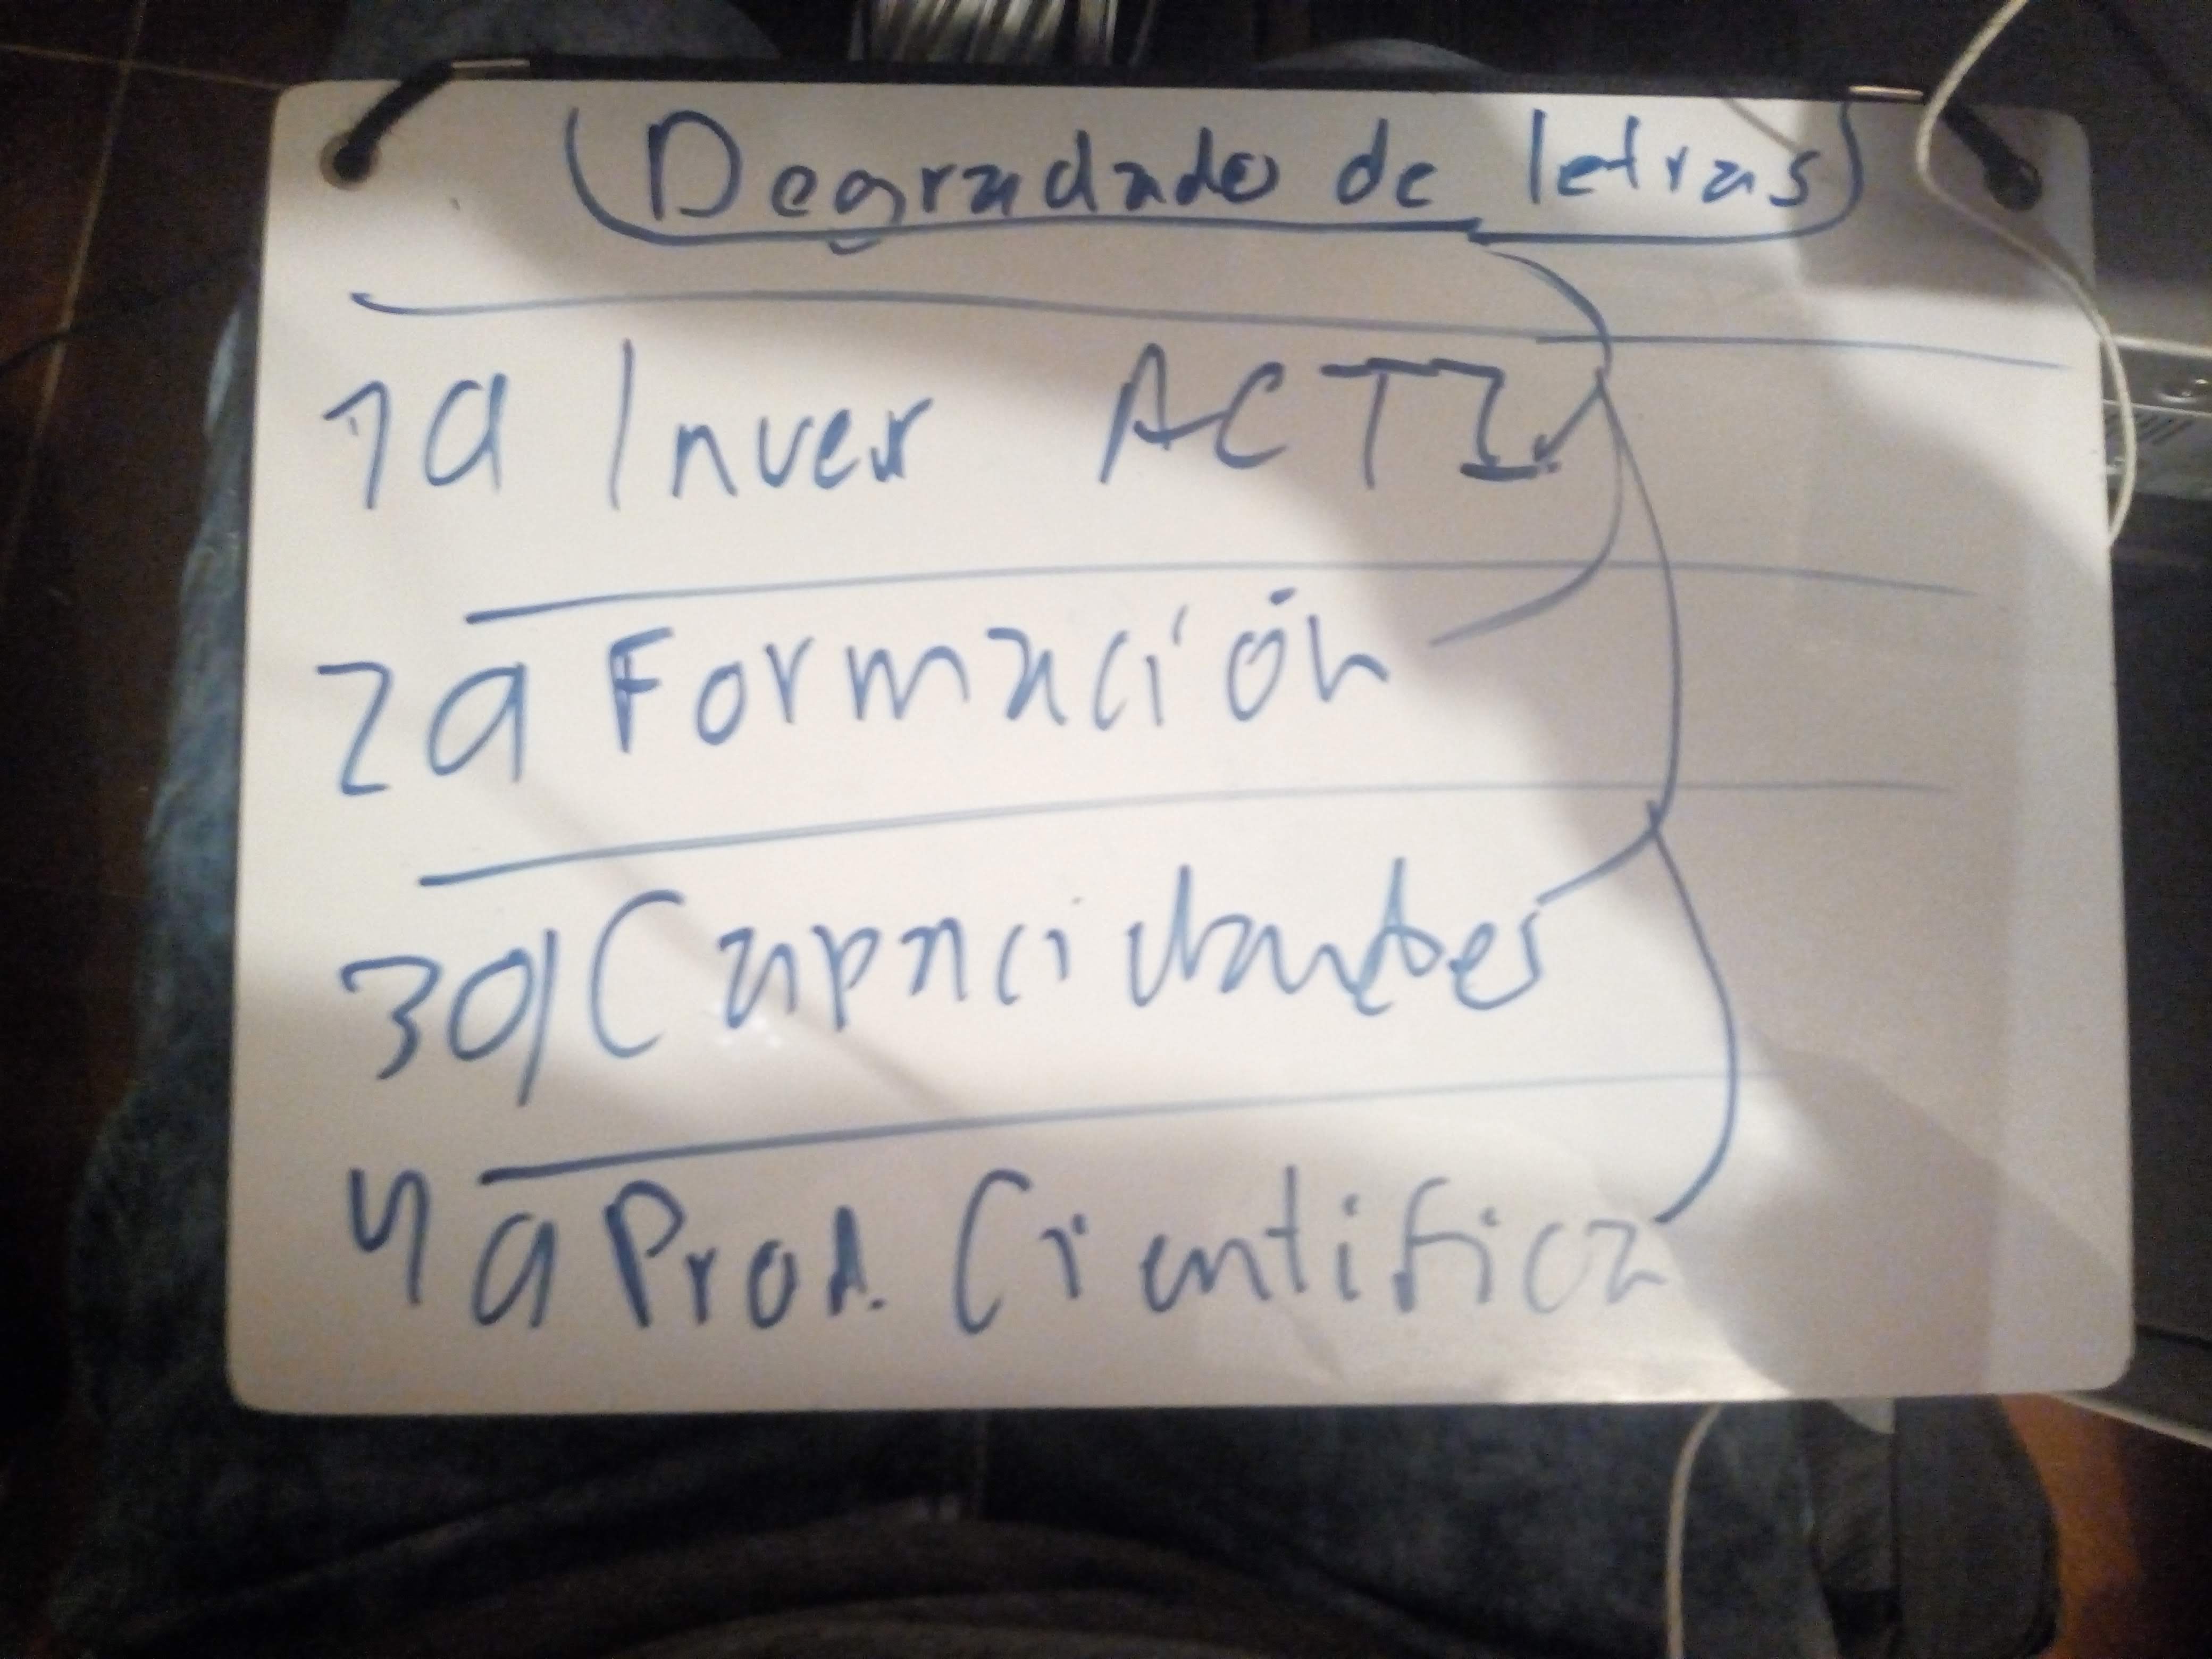 Degradado de letras
1a Inver ACTI
2a Formación
3a Capacidades
4a Prod. Cientifica